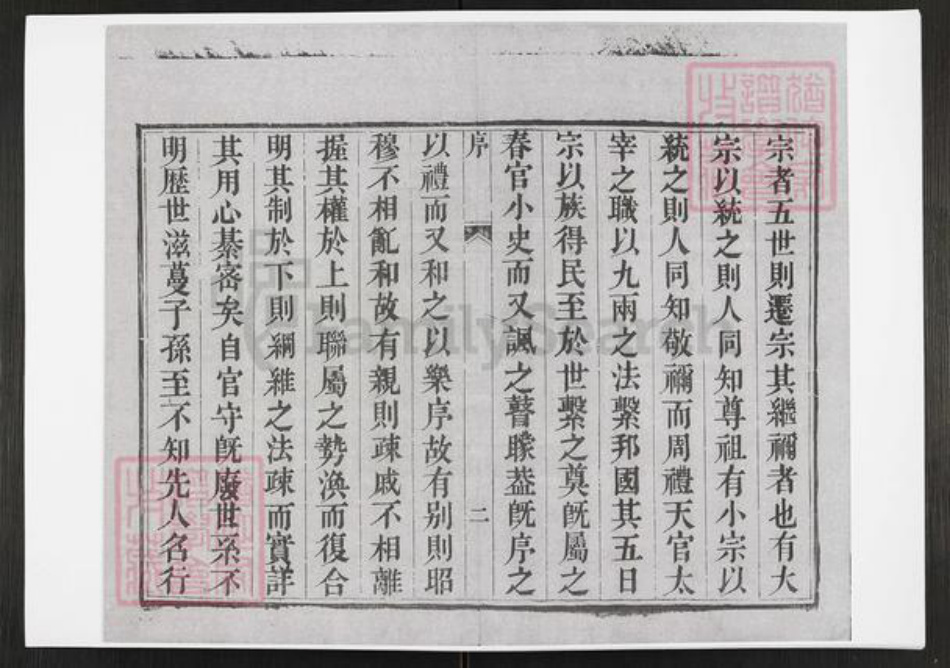 宗者五世則遷宗其繼禰者也有大
宗以統之則人同知尊祖有小宗以
統之則人同知敬禰而周禮天官太
宰之職以九兩之法繫邦國其五曰
宗以族得民至於世繫之奠旣屬之
春官小史而又諷之瞽矇葢旣序之
序 二
以禮而又和之以樂序故有别則昭
穆不相亂和故有親則疎戚不相離
握其權於上則聯屬之勢渙而復合
明其制於下則綱維之法疎而實詳
其用心綦密矣自官守旣廢世系不
明歷世滋蔓子孫至不知先人名行
FamilySearch